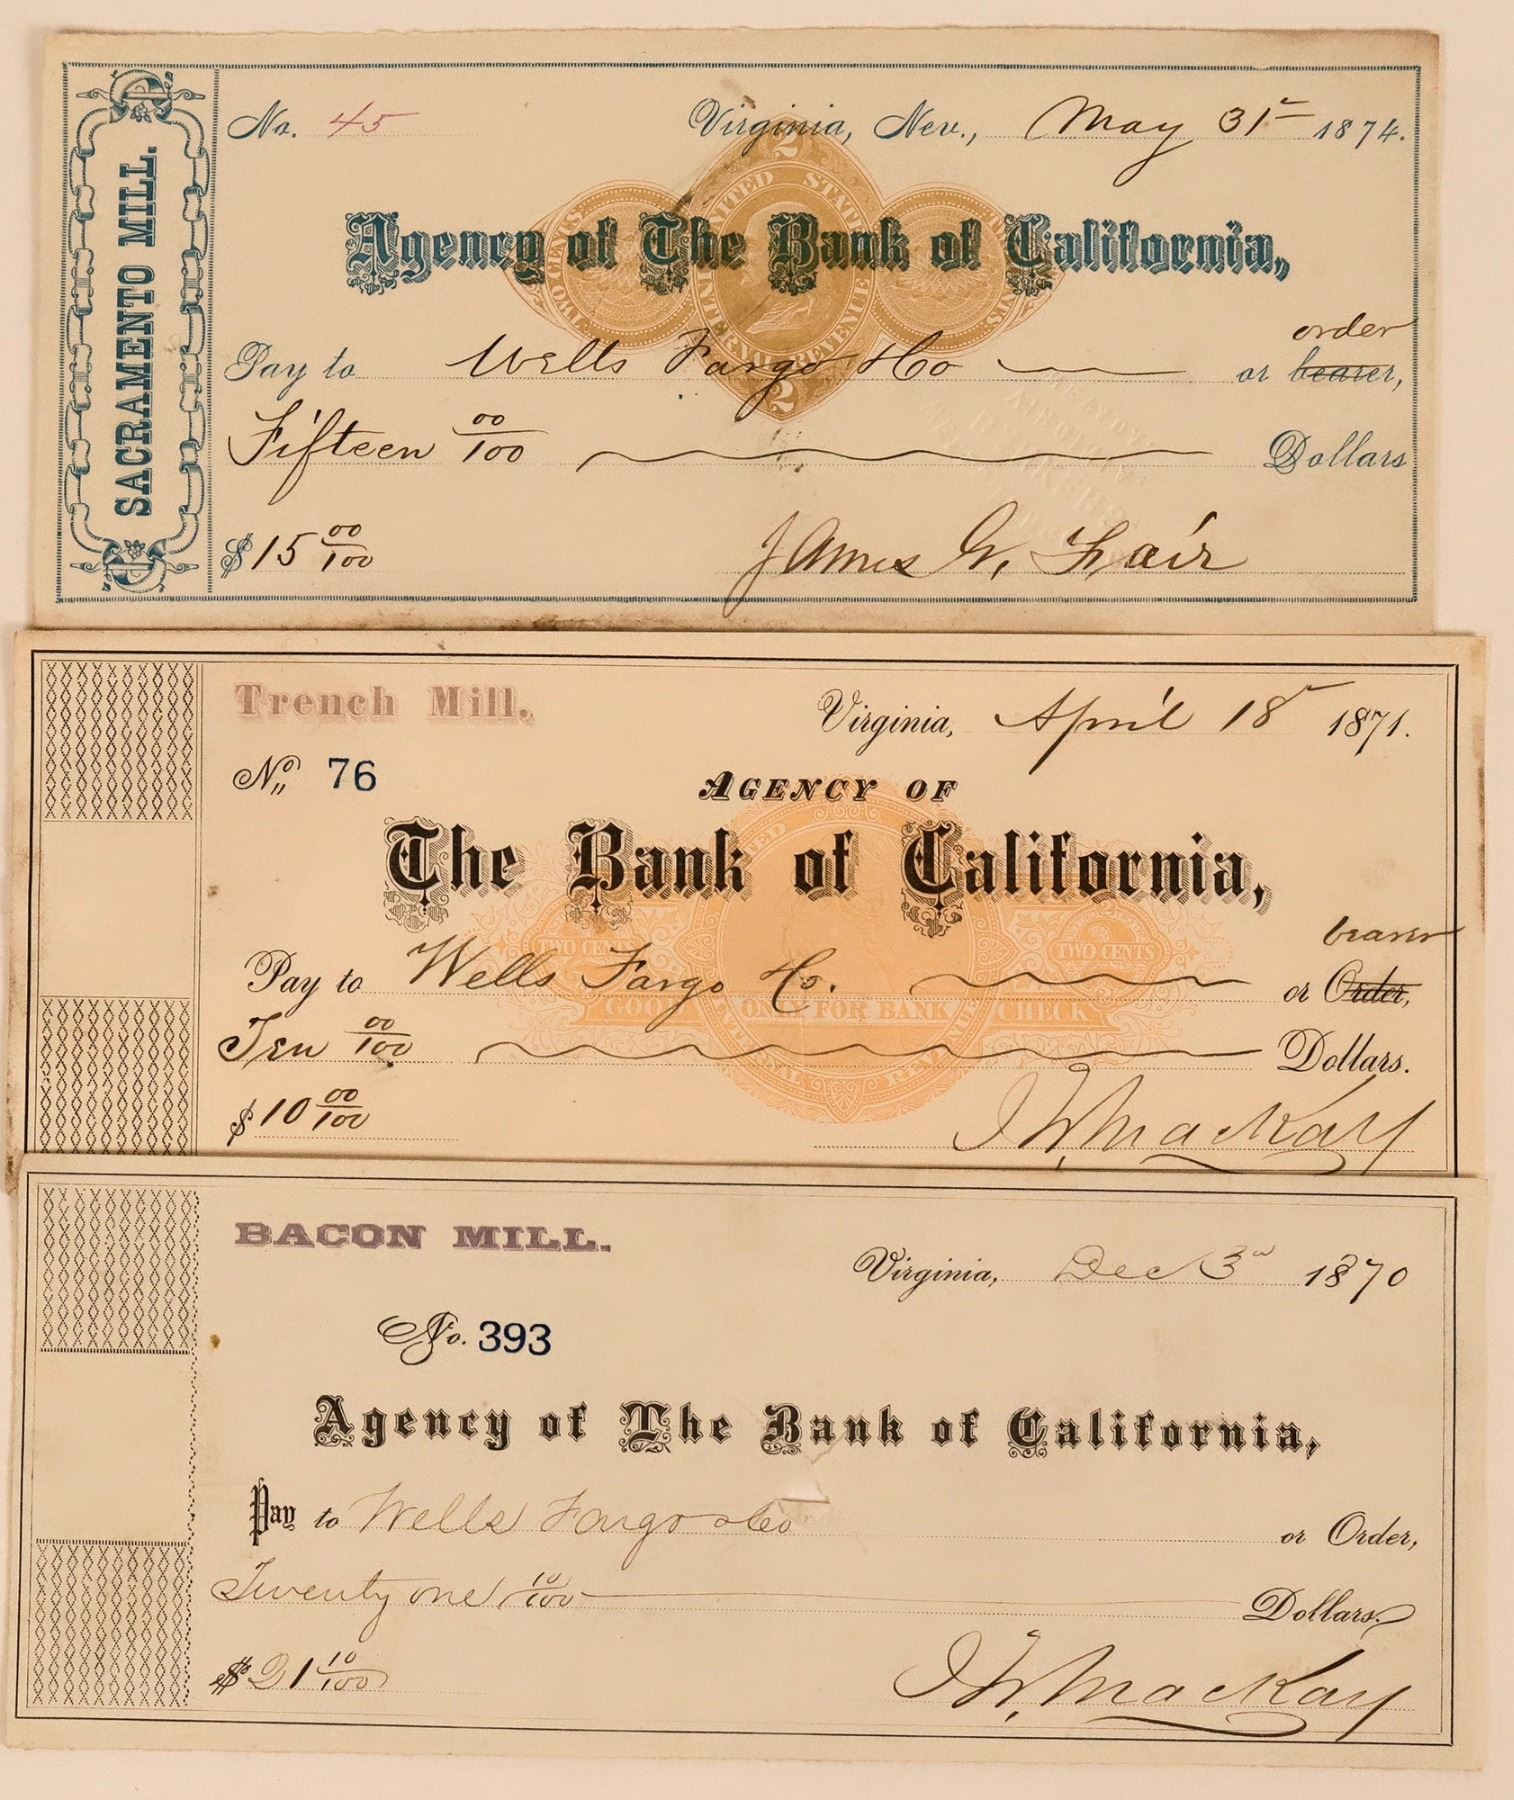 SACRAMENTO MILL.
No. 45 Virginia, Nev., May 31st 1874.
2
UNITED STATES
Agency of The Bank of California,
TWO CENTS
INTERNAL REVENUE
2
order
Pay to Wells Fargo & Co or bearer,
Fifteen 00/100 Dollars
$15 00/100 James G. Fair
Trench Mill. Virginia, April 18th 1871.
No. 76
AGENCY OF
The Bank of California,
bearer
TWO CENTS TWO CENTS
Pay to Wells Fargo & Co. or Order,
GOOD ONLY FOR BANK CHECK
Ten 00/100 Dollars.
$10 00/100 J W MacKay
BACON MILL. Virginia, Dec 3d 1870
No. 393
Agency of The Bank of California,
Pay to Wells Fargo & Co or Order,
Twenty one 10/100 Dollars
$21 10/100 J W MacKay